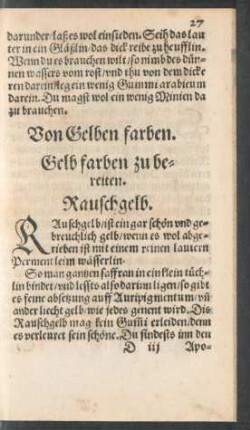 27
darunder/laß es wol einsieden. Seih das lau
ter in ein Gläßlin/das dick reibe zu heufflin.
Wenn du es brauchen wilt/so nimb des dün-
nen wassers vom rost/vnd thu von dem dicke
ren darein/leg ein wenig Gummi arabicum
darein. Du magst wol ein wenig Minien da
zu brauchen.
Von Gelben farben.
Gelb farben zu be-
reiten.
Rauschgelb.
RAuschgelb/ist ein gar schön vnd ge-
breuchlich gelb/wenn es wol abge-
rieben ist mit einem reinen lautern
Permentleim wässerlin.
So man gantzen saffran in ein klein tüch-
lin bindet/vnd lessts also darum ligen/so gibt
es seine absetzung auff Auripigmentum/vñ
ander liecht gelb/wie jedes genent wird. Dis
Rauschgelb mag kein Gum̃i erleiden/denn
es verleuret sein schöne. Du findests inn den
D iij Apo-